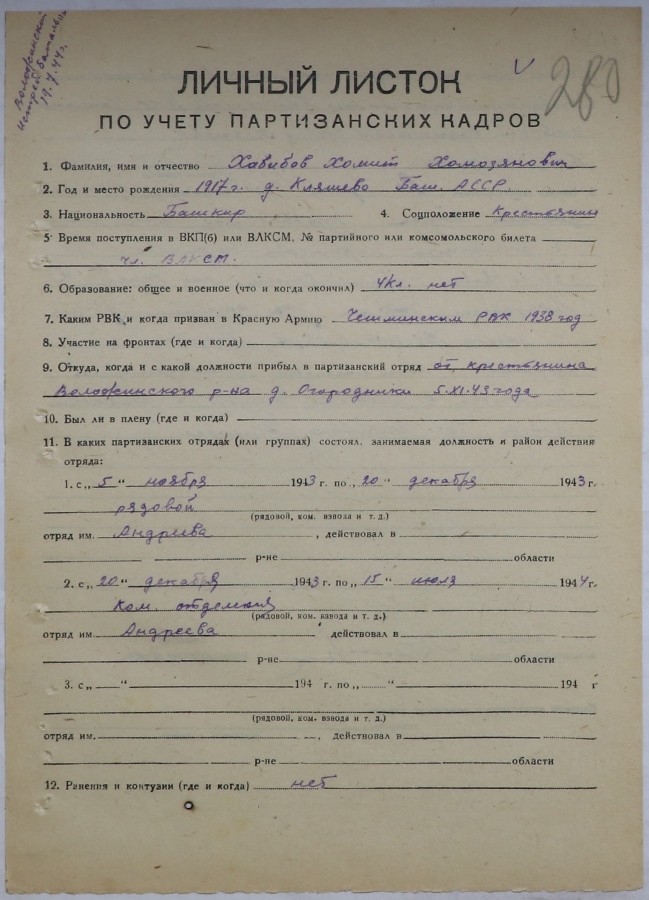 Воложинский
истреб. батальон
19.7.44 г.
V 280
ЛИЧНЫЙ ЛИСТОК
ПО УЧЕТУ ПАРТИЗАНСКИХ КАДРОВ
1. Фамилия, имя и отчество Хабибов Хомит Хомозянович
2. Год и место рождения 1917 г. д. Кляшево Баш. АССР.
3. Национальность Башкир 4. Соцположение Крестьянин
5. Время поступления в ВКП(б) или ВЛКСМ, № партийного или комсомольского билета
чл. ВЛКСМ.
6. Образование: общее и военное (что и когда окончил) 4 Кл. нет
7. Каким РВК и когда призван в Красную Армию Чешминским РВК 1938 год
8. Участие на фронтах (где и когда)
9. Откуда, когда и с какой должности прибыл в партизанский отряд от крестьянина
Воложинского р-на д. Огородники 5.XI.43 года
10. Был ли в плену (где и когда)
11. В каких партизанских отрядах (или группах) состоял, занимаемая должность и район действия
отряда:
1. с „5" ноября 1943 г. по „20" декабря 1943 г.
рядовой
(рядовой, ком. взвода и т. д.)
отряд им. Андреева, действовал в
р-не области
2. с „20" декабря 1943 г. по „15" июля 1944 г.
Ком. отделения
(рядовой, ком. взвода и т. д.)
отряд им. Андреева действовал в
р-не области
3. с „ " 194 г. по „ " 194 г
(рядовой, ком. взвода и т. д.)
отряд им. , действовал в
р-не области
12. Ранения и контузии (где и когда) нет